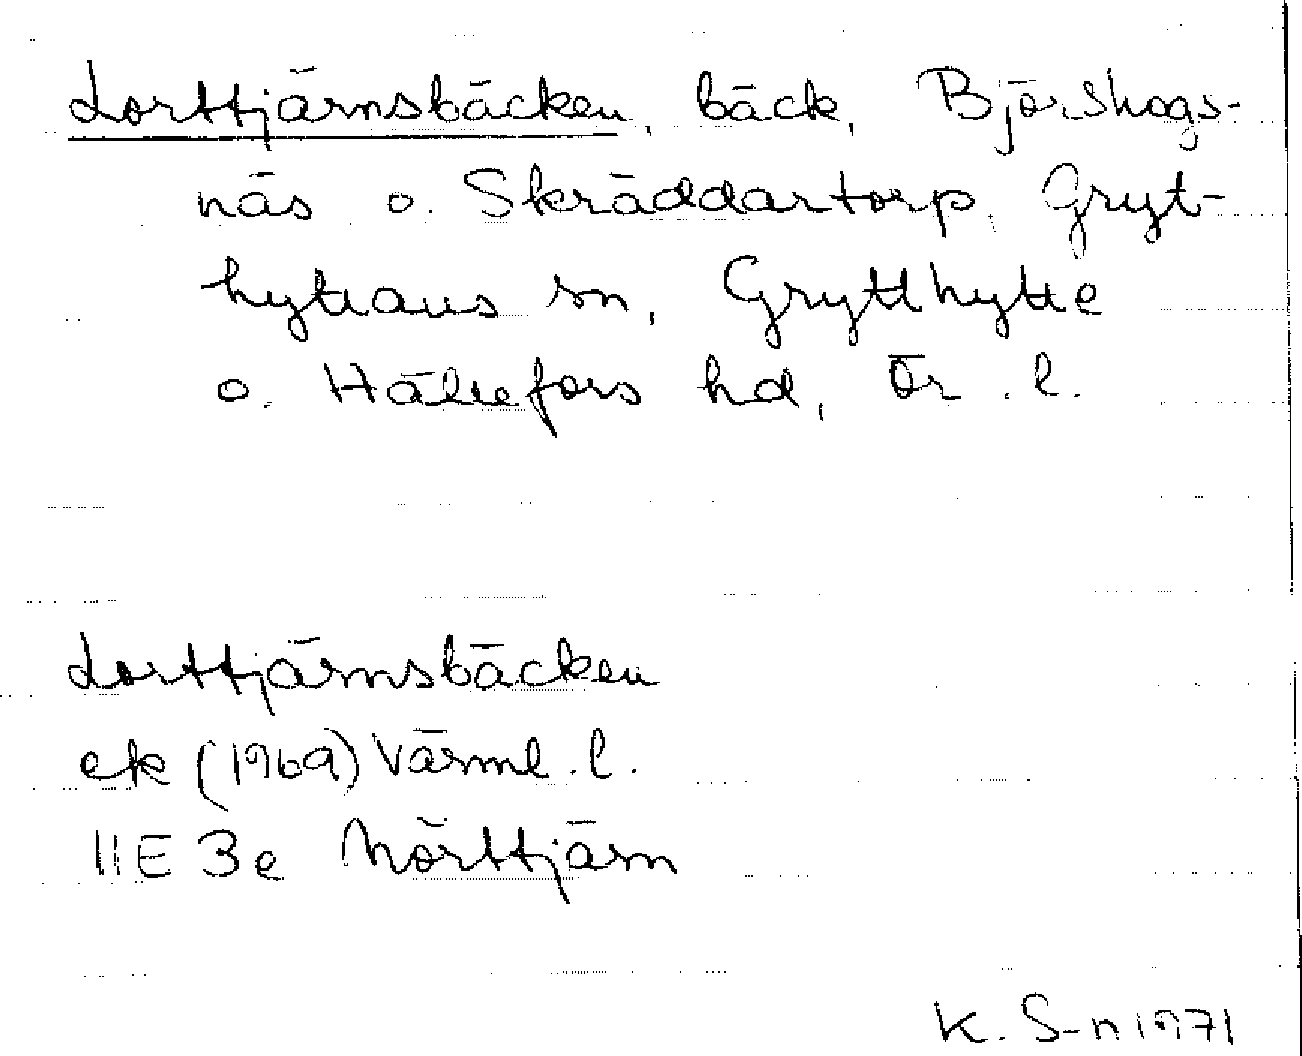 Lorttjärnsbäcken, bäck, Björskogs-
näs o. Skräddartorp, Gryt-
hyttans sn, Grytthytte
o. Hällefors hd, Ör. l.
Lorttjärnsbäcken
ek (1969) Värml. l.
11E 3e Mörttjärn
K. S-n 1971